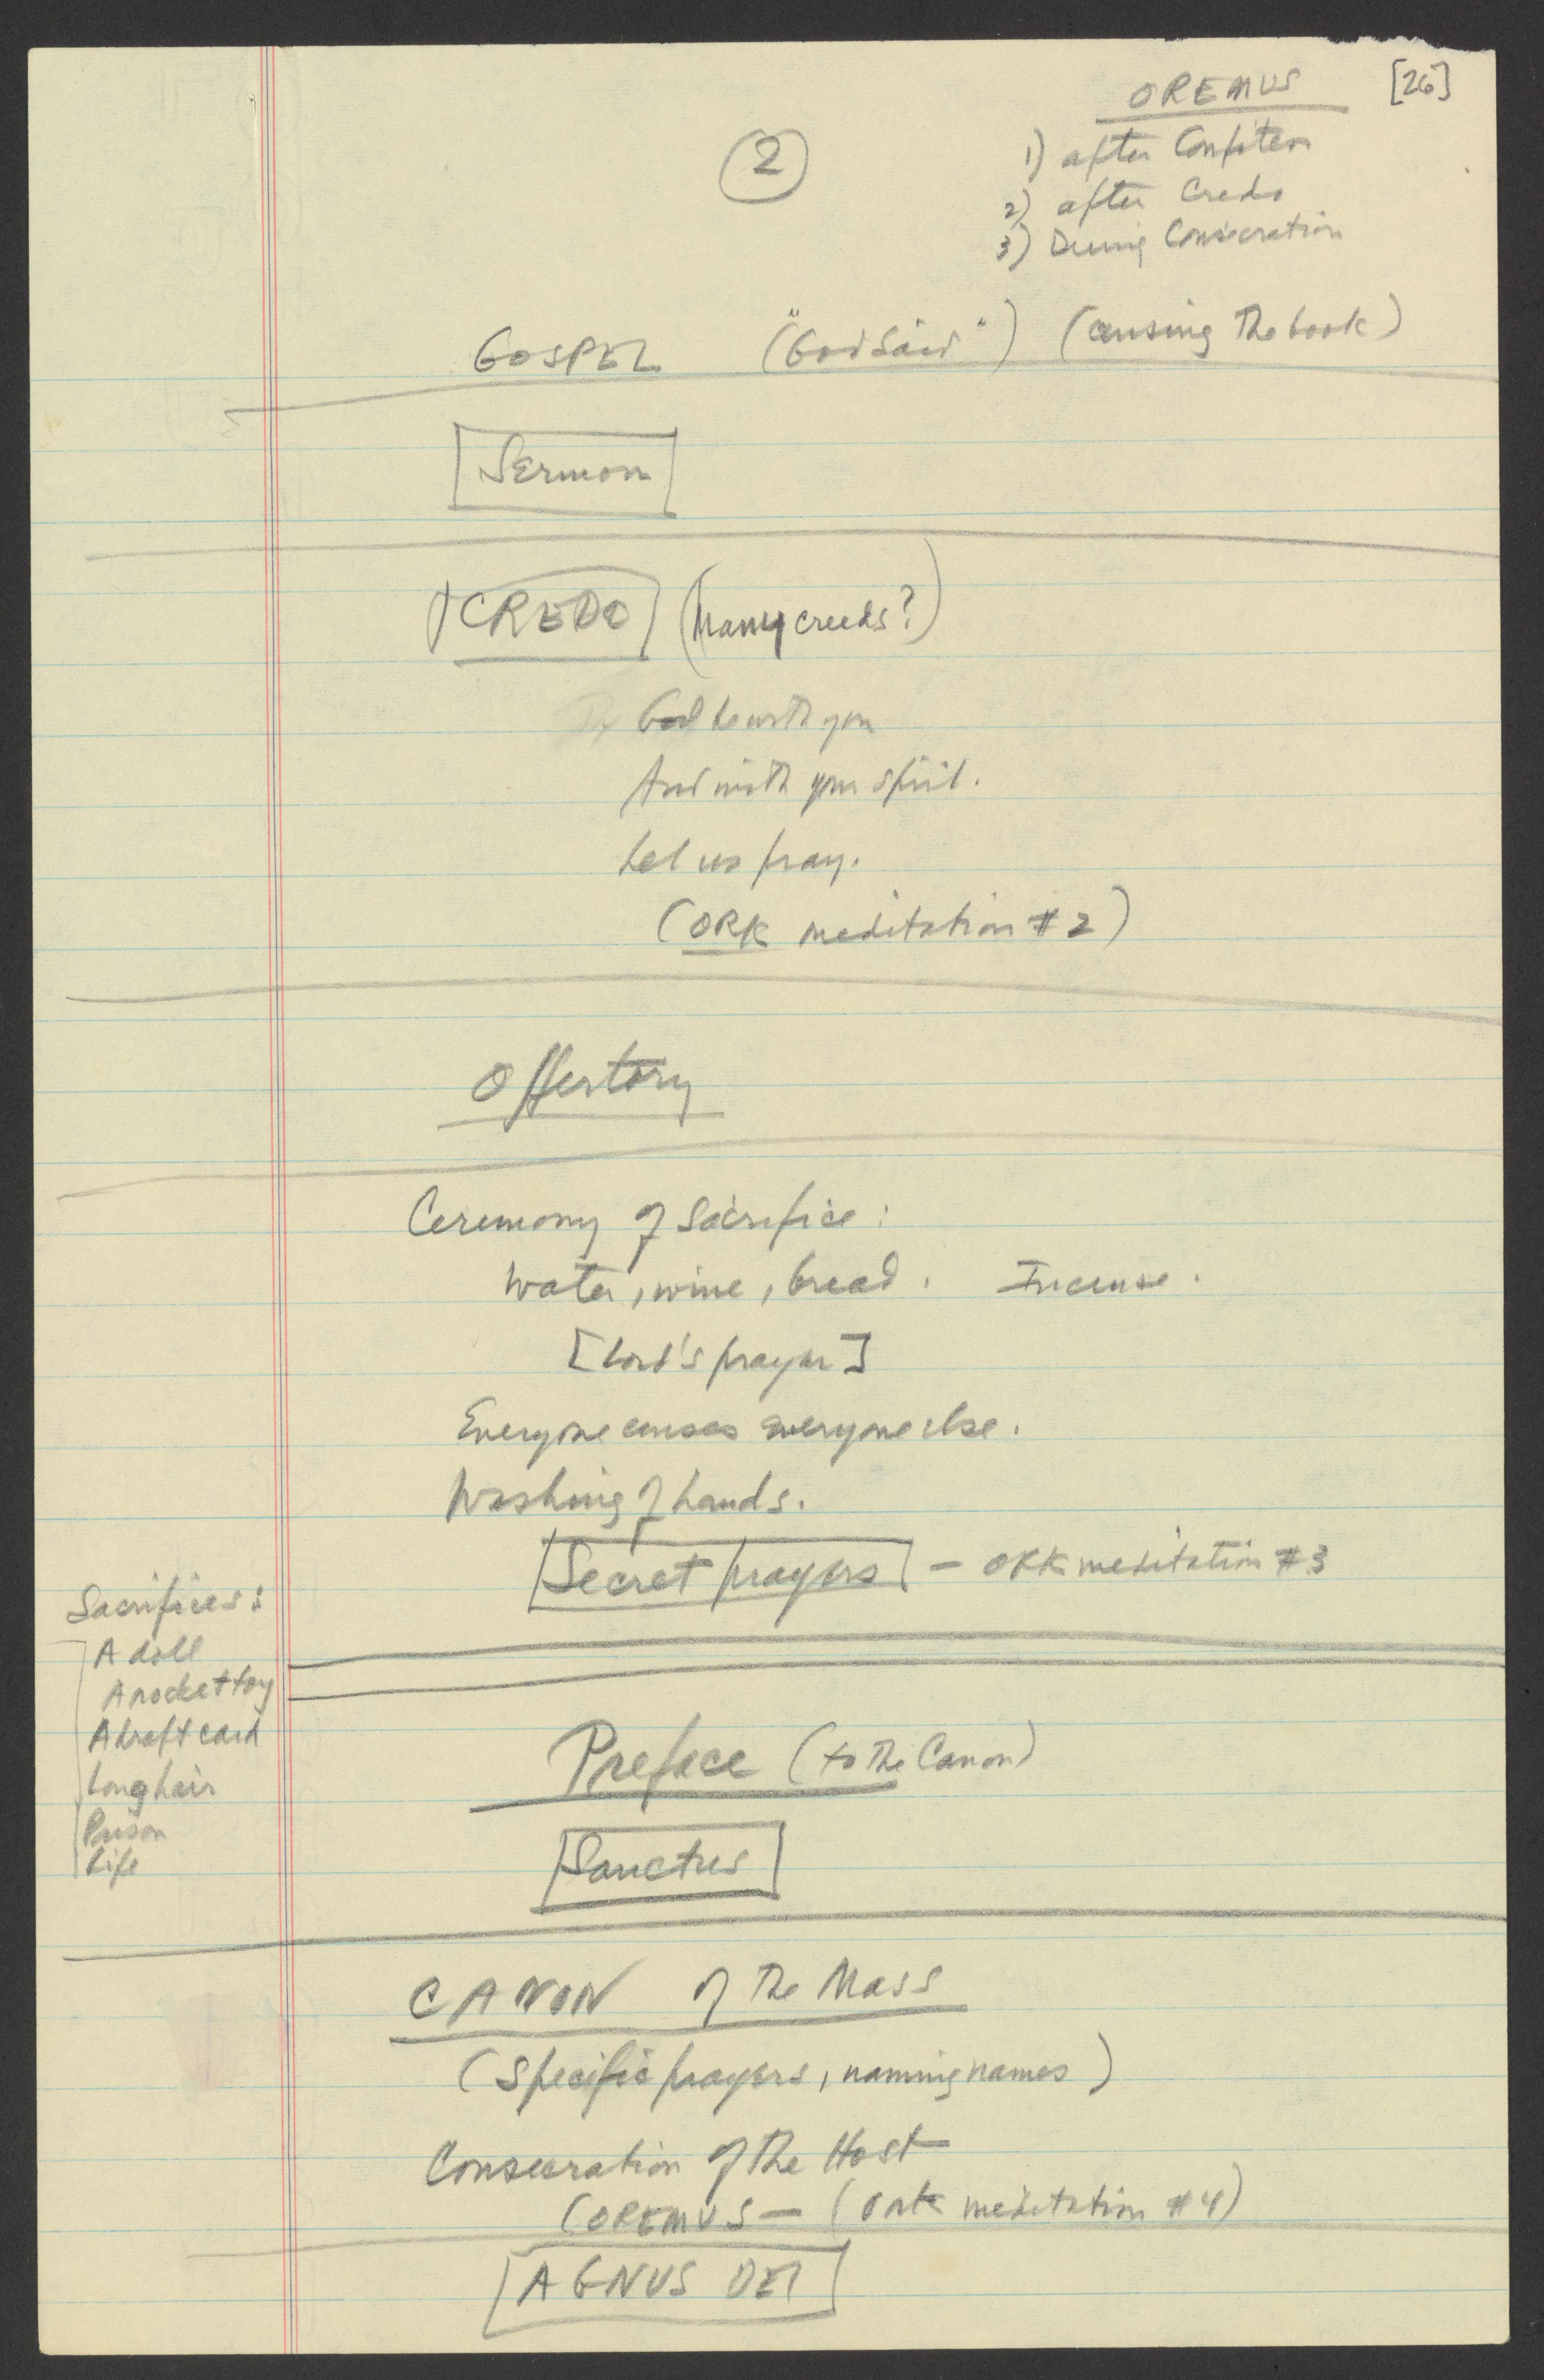 [26]
OREMUS
1) after Confiteor
2) after Credo
3) During Consecration
2
GOSPEL ("God Said") (censing the book)
Sermon
CREDO (Many creeds?)
God be with you
And with your spirit.
Let us pray.
(ORK meditation #2)
Offertory
Ceremony of Sacrifice:
Water, wine, bread. Incense.
[Lord's prayer]
Everyone censes everyone else.
Washing of hands.
Secret prayers — ORK meditation #3
Sacrifices:
A doll
A rocket toy
A draft card
Long hair
Prison
Life
Preface (to the Canon)
Sanctus
CANON of the Mass
(Specific prayers, naming names)
Consecration of the Host
(OREMUS — (Ork meditation #4)
AGNUS DEI